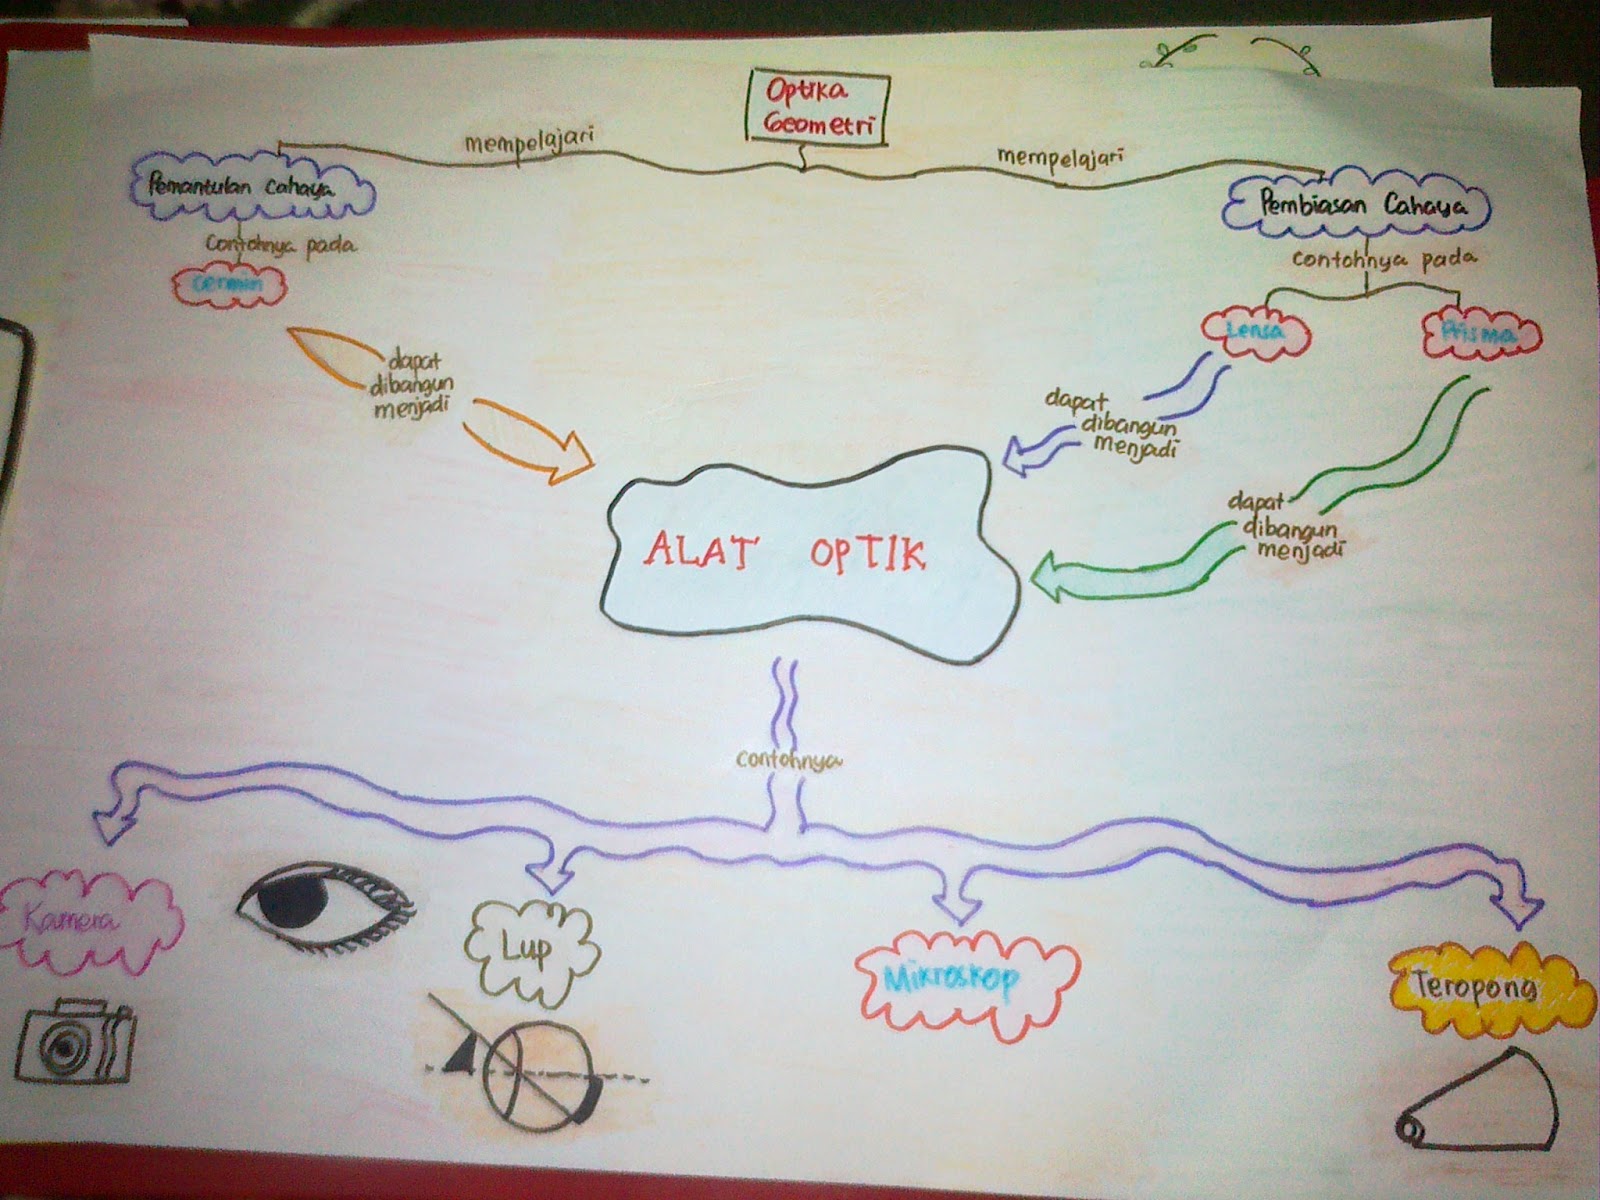 Optika
Geometri
mempelajari
mempelajari
Pemantulan Cahaya
Contohnya pada
Cermin
Pembiasan Cahaya
contohnya pada
Lensa
Prisma
dapat
dibangun
menjadi
dapat
dibangun
menjadi
dapat
dibangun
menjadi
ALAT OPTIK
contohnya
Kamera
Lup
Mikroskop
Teropong